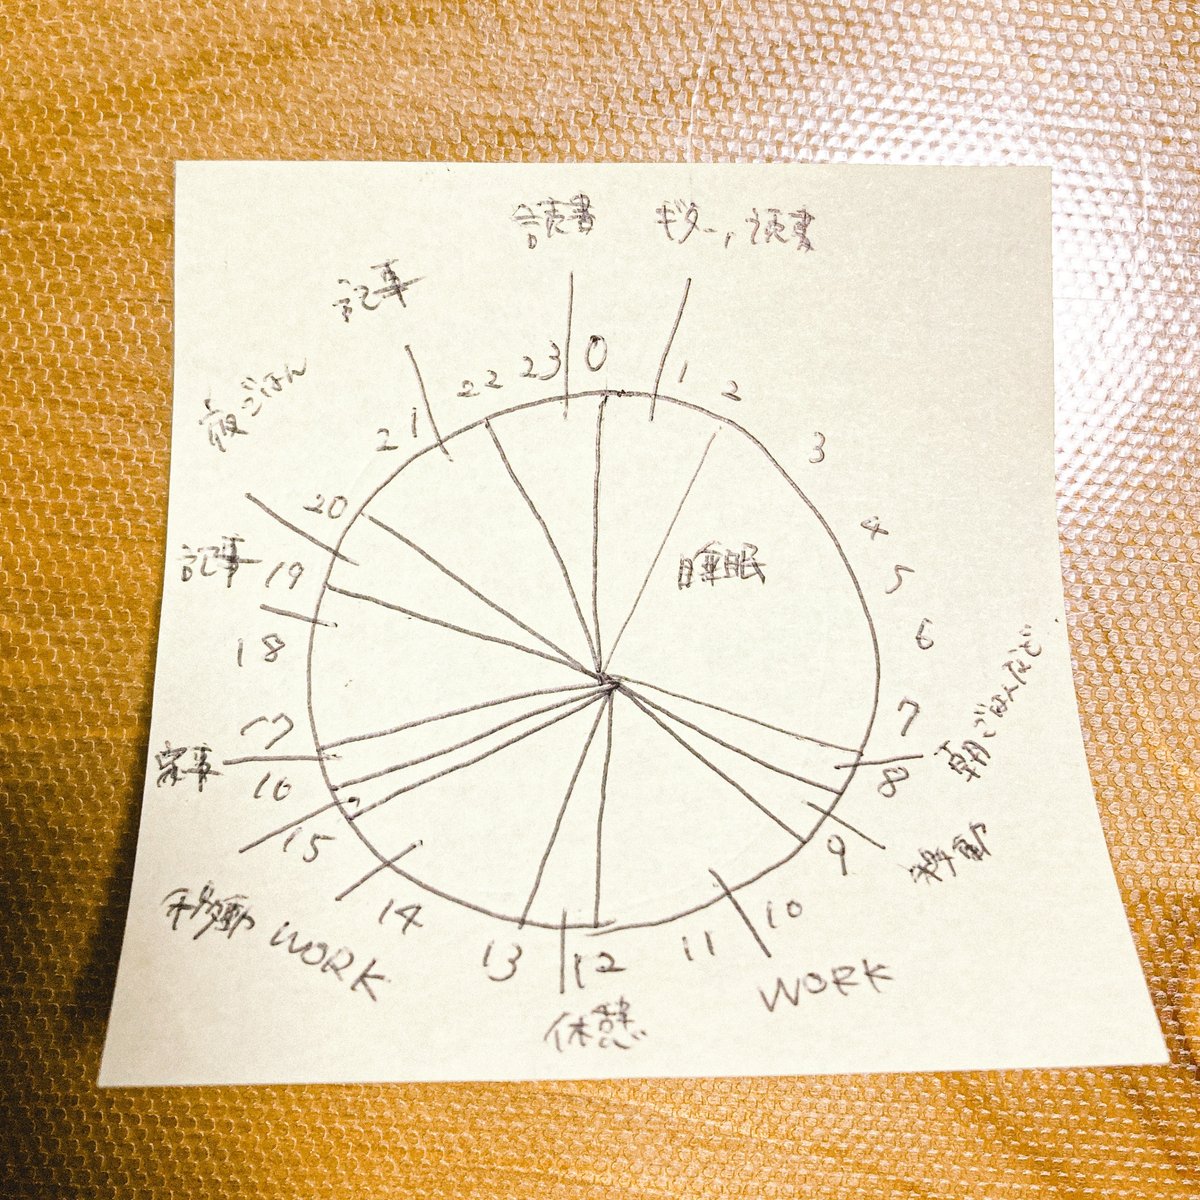 読書
ギター, 読書
記事
夜ごはん
記事
家事
移動
WORK
休憩
WORK
移動
朝ごはんなど
睡眠
0
1
2
3
4
5
6
7
8
9
10
11
12
13
14
15
16
17
18
19
20
21
22
23